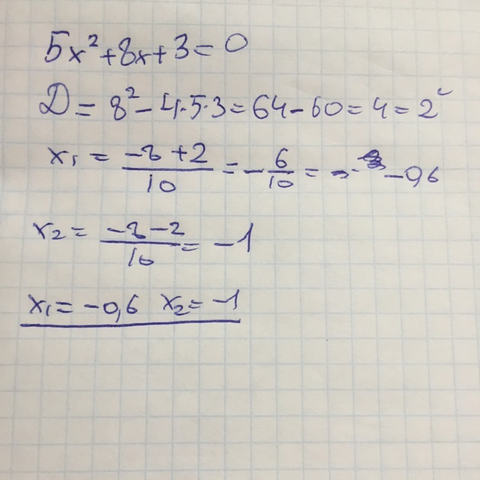 5x²+8x+3=0
D=8²-4·5·3=64-60=4=2²
x₁=-8+2/10=-6/10=-0,6
x₂=-8-2/10=-1
x₁=-0,6 x₂=-1